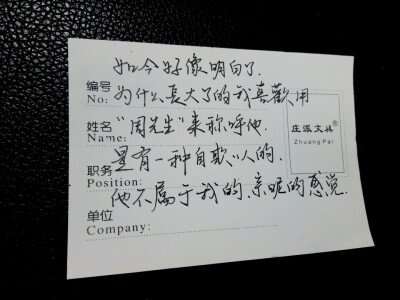 如今好像明白了.
编号
No:
为什么長大了的我喜歡用
姓名
Name:
"周先生"来称呼他.
庄派文具®
Zhuang Pai
是有一种自欺欺人的.
职务
Position:
他不属于我的.亲昵的感觉.
单位
Company: